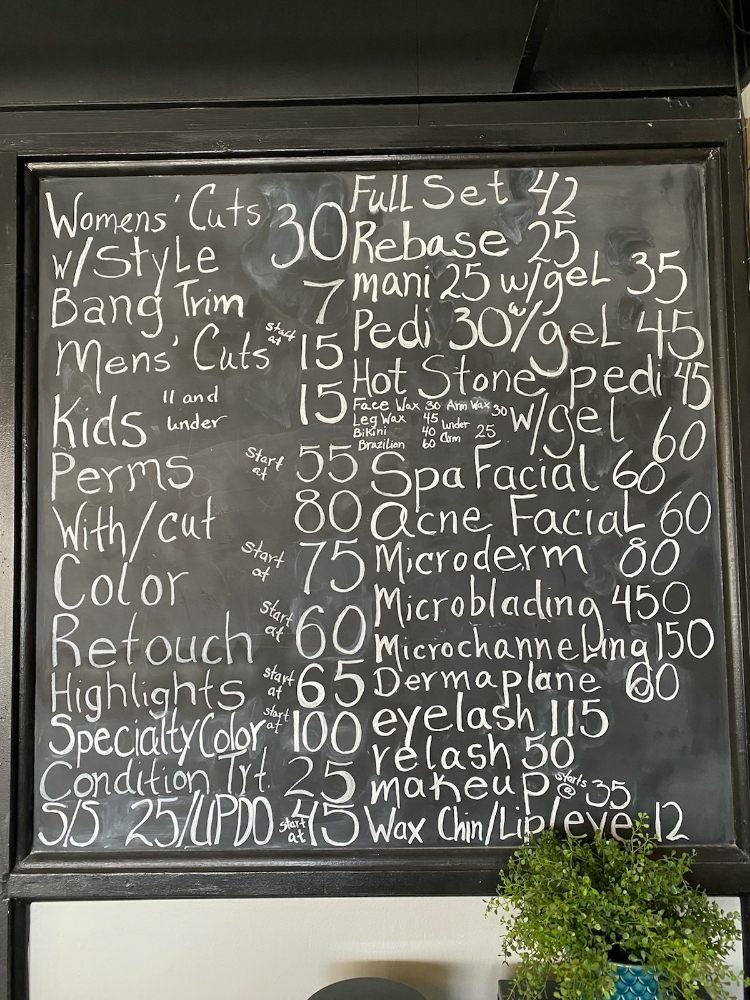 Womens' Cuts 30
w/Style
Bang Trim 7
Mens' Cuts start at 15
Kids 11 and under 15
Perms Start at 55
With/cut 80
Color Start at 75
Retouch Start at 60
Highlights start at 65
Specialty Color start at 100
Condition Trt. 25
S/S 25/UPDO start at 45
Full Set 42
Rebase 25
mani 25 w/gel 35
Pedi 30 w/gel 45
Hot Stone pedi 45
w/gel 60
Face Wax 30 Arm Wax 30
Leg Wax 45 under arm 25
Bikini 40
Brazilian 60
Spa Facial 60
Acne Facial 60
Microderm 80
Microblading 450
Microchanneling 150
Dermaplane 60
eyelash 115
relash 50
makeup starts @ 35
Wax Chin/Lip/eye 12